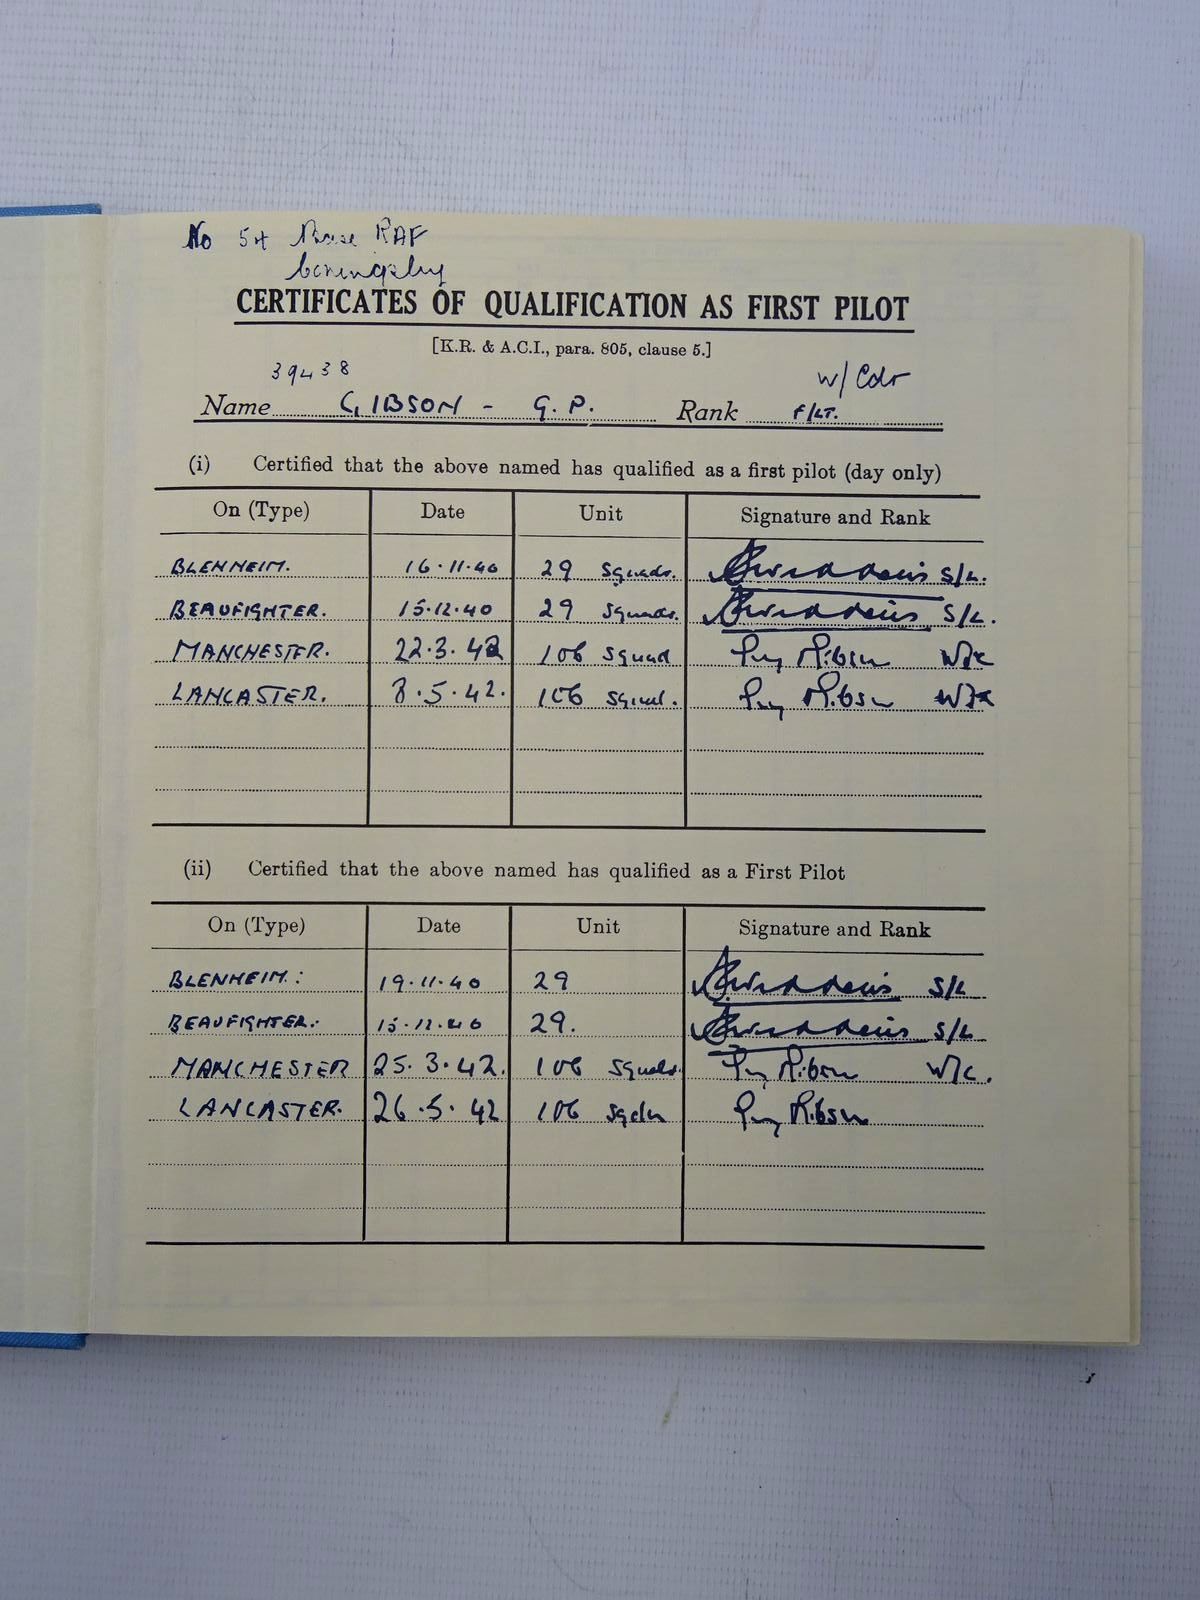 No 54 Base RAF
Coningsby
CERTIFICATES OF QUALIFICATION AS FIRST PILOT
[K.R. & A.C.I., para. 805, clause 5.]
39438 W/Cdr
Name GIBSON - G. P. Rank F/LT.
(i) Certified that the above named has qualified as a first pilot (day only)
On (Type) Date Unit Signature and Rank
BLENHEIM. 16.11.40 29 Squads. S/L.
BEAUFIGHTER. 15.12.40 29 Squads. S/L.
MANCHESTER. 22.3.42 106 Squad Guy Gibson W/C
LANCASTER. 8.5.42. 106 Guy Gibson W/C
(ii) Certified that the above named has qualified as a First Pilot
On (Type) Date Unit Signature and Rank
BLENHEIM: 19.11.40 29 S/L
BEAUFIGHTER: 15.12.40 29. S/L
MANCHESTER 25.3.42. 106 Guy Gibson W/C.
LANCASTER. 26.5.42 106 Guy Gibson